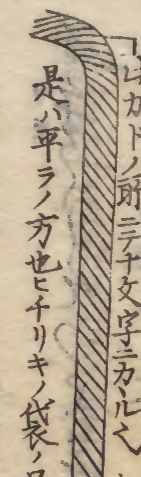 此カドノ所ニテ十文字ニカヽル也
是ハ平ラノ方也ヒチリキノ袋ノ